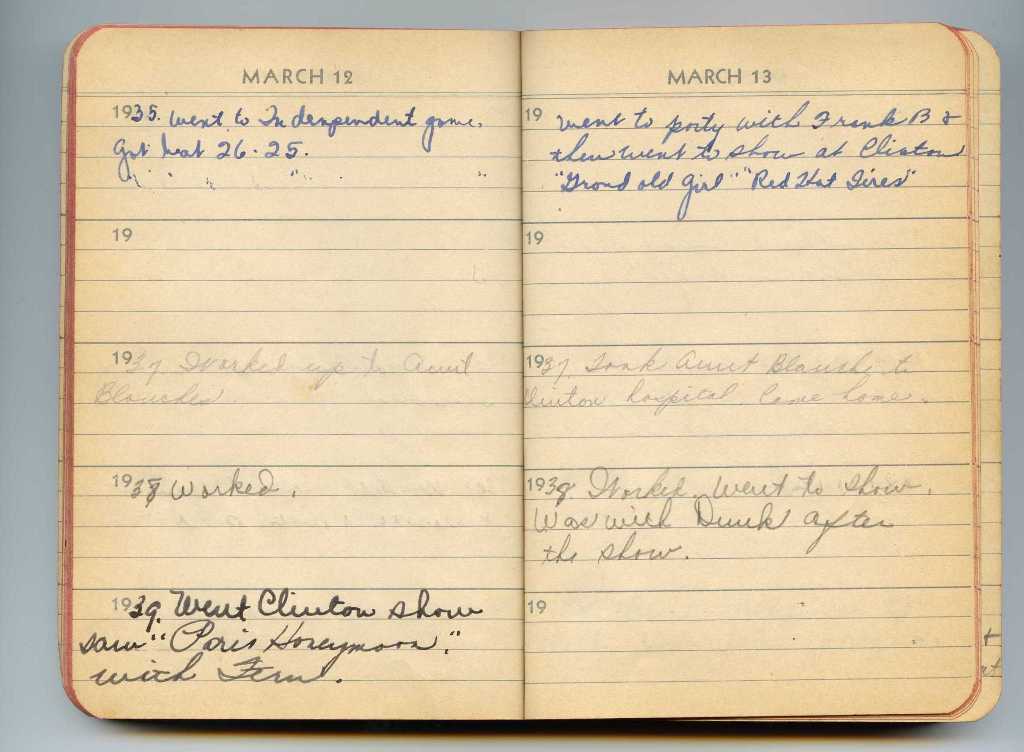 MARCH 12
1935. Went to Indenpendent game.
Got beat 26-25.
19
1937 Worked up to Aunt
Blanches.
1938 Worked.
1939. Went Clinton show
saw "Paris Honeymoon".
with Fern.
MARCH 13
19 Went to party with Frank B &
then went to show at Clinton
"Grand old Girl" "Red Hot Tires"
19
1937 Took Aunt Blanche to
Clinton hospital. Came home.
1938 Worked. Went to show.
Was with Dunk after
the show.
19